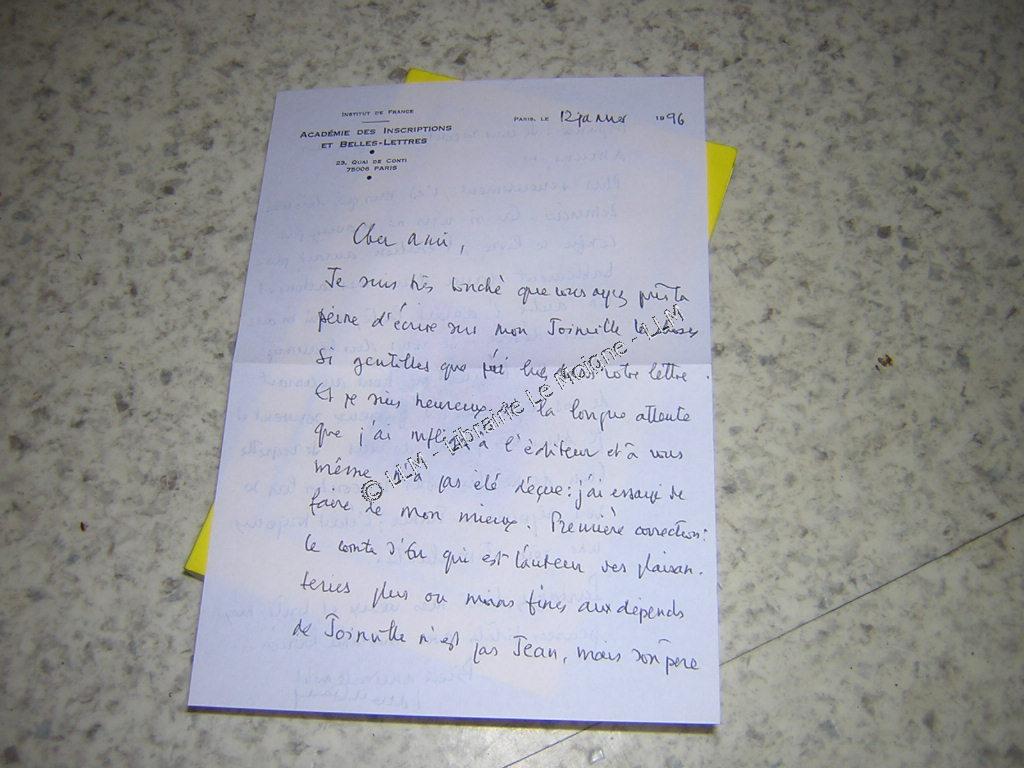 INSTITUT DE FRANCE
ACADÉMIE DES INSCRIPTIONS
ET BELLES-LETTRES
23, QUAI DE CONTI
75006 PARIS
PARIS, LE 12 janvier 1996
Cher ami,
Je suis très touché que vous ayez pris la
peine d'écrire sur mon Joinville les choses
si gentilles que j'ai lues dans votre lettre.
Et je suis heureux que la longue attente
que j'ai infligée à l'éditeur et à vous
même n'a pas été déçue : j'ai essayé de
faire de mon mieux. Première correction :
le comte d'Eu qui est l'auteur des plaisan-
teries plus ou moins fines aux dépends
de Joinville n'est pas Jean, mais son père
© LLM - Librairie Le Moigne - LLM